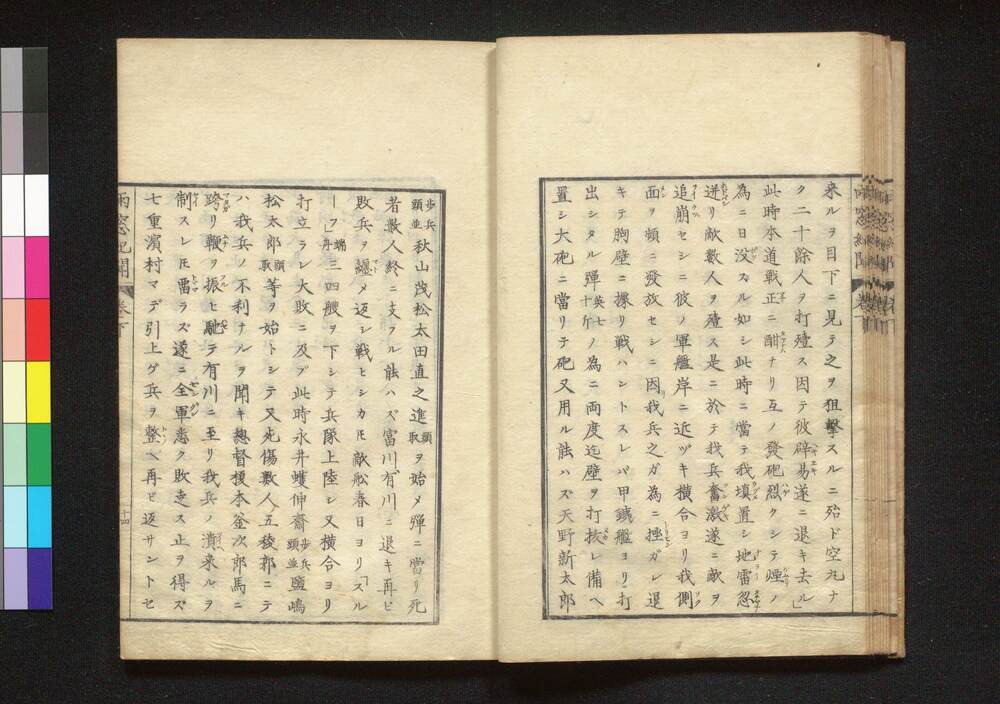 来ルヲ目下ニ見テ之ヲ狙撃スルニ殆ド空丸ナ
ク二十餘人ヲ打殪ス因テ彼辟易遂ニ退キ去ル」
此時本道戦正ニ酣ナリ互ノ發砲烈クシテ煙ノ
為ニ日没スル如シ此時ニ當テ我填置シ地雷忽
迸リ敵数人ヲ殪ス是ニ於テ我兵奮激遂ニ敵ヲ
追崩セシニ彼ノ軍艦岸ニ近ヅキ横合ヨリ我側
面ヲ頻ニ發放セシニ因我兵之ガ為ニ挫ガレ退
キテ胸壁ニ據リ戦ハントスレバ甲鐵艦ヨリ打
出シタル弾英七十斤ノ為ニ両度迄壁ヲ打抜レ備ヘ
置シ大砲ニ當リテ砲又用ル能ハズ天野新太郎
歩兵頭並秋山茂松太田直之進頭取ヲ始メ弾ニ當リ死
者数人終ニ支フル能ハズ富川有川ニ退キ再ビ
敗兵ヲ纏メ返シ戦ヒシカ𪜈敵舩春日ヨリ「スル
ーフ」端舟三四艘ヲ下シテ兵隊上陸シ又横合ヨリ
打立ラレ大敗ニ及ブ此時永井蠖伸齋歩兵頭並鹽嶋
松太郎頭取等ヲ始トシテ又死傷数人五稜郭ニテ
ハ我兵ノ不利ナルヲ聞キ総督榎本釜次郎馬ニ
跨リ鞭ヲ振ヒ馳テ有川ニ至リ我兵ノ潰来ルヲ
制スレ𪜈畄ラズ遂ニ全軍悉ク敗走ス止ヲ得ズ
七重濱村マデ引上ゲ兵ヲ整ヘ再ビ返サントセ
雨窓紀聞 巻下 十四